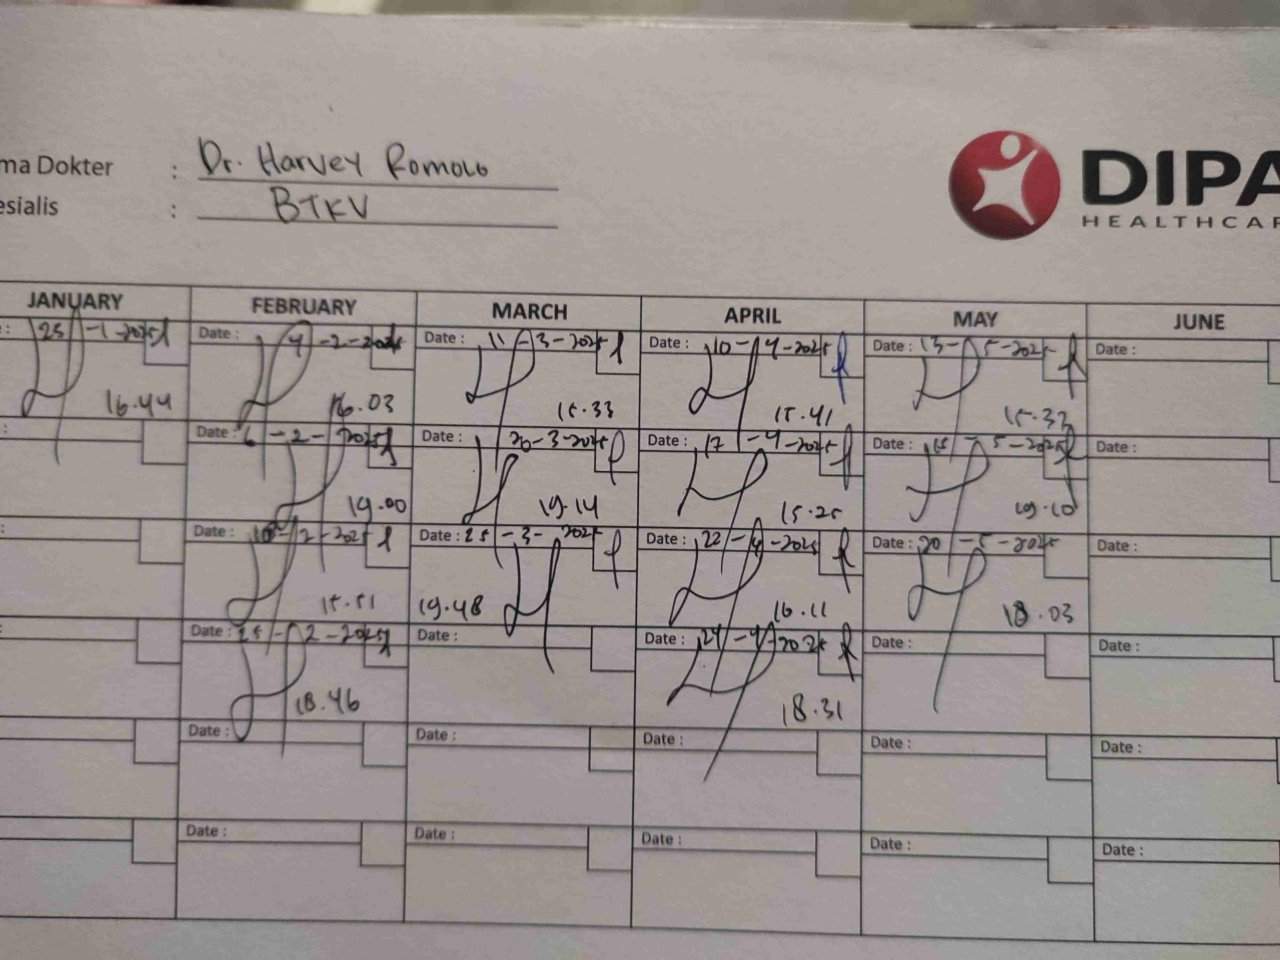 ma Dokter : Dr. Harvey Romolo
esialis : BTKV
DIPA
HEALTHCAR
JANUARY FEBRUARY MARCH APRIL MAY JUNE
: 25 -1-2025 Date : 4 -2-2025 Date : 11 -3-2025 Date : 10-4-2025 Date : 13-5-2025 Date :
16.44 16.03 15.33 15.41 15.33
: Date : 6 -2-2025 Date : 20-3-2025 Date : 17 -4-2025 Date : -5-2025 Date :
19.00 19.14 15.25 19.10
: Date : -2-2025 Date : 25 -3- 2025 Date : 22 -4-2025 Date : 20 -5-2025 Date :
15.51 19.48 16.11 18.03
: Date : 25 -2-2025 Date : Date : 24-4-2025 Date : Date :
18.46 18.31
Date : Date : Date : Date : Date :
Date : Date : Date : Date : Date :